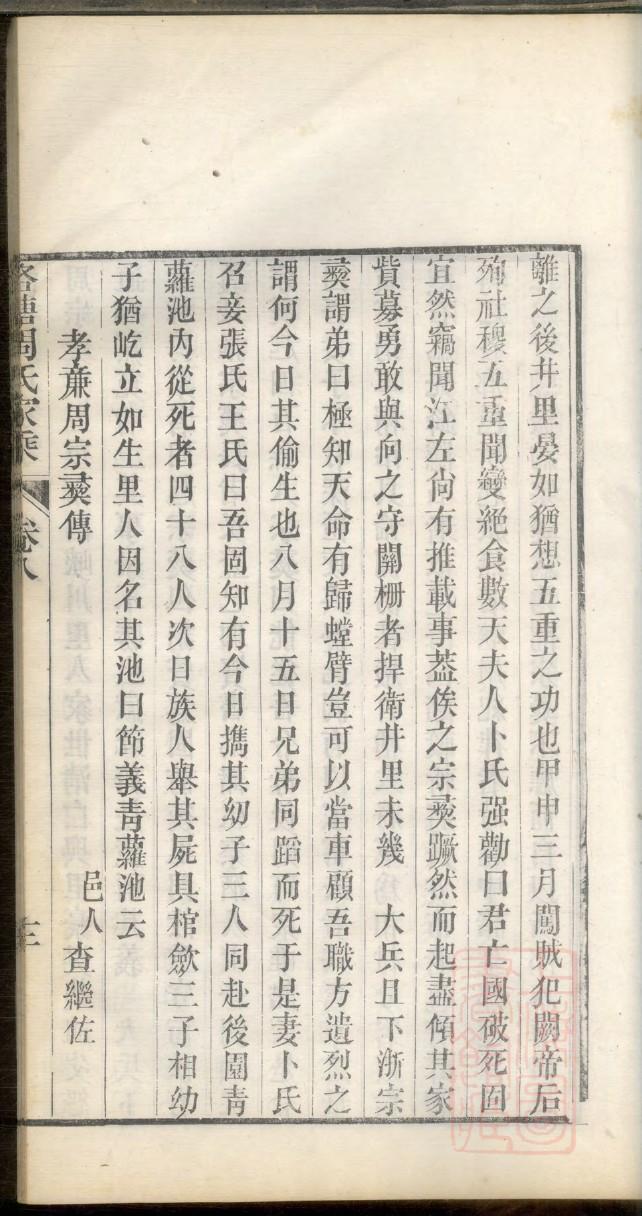 離之後井里晏如猶想五重之功也甲申三月闖賊犯闕帝后
殉社稷五重聞變絕食數天夫人卜氏强勸曰君亡國破死固
宜然竊聞江左尙有推載事葢俟之宗彝蹶然而起盡傾其家
貲募勇敢與向之守關柵者捍衛井里未幾　大兵且下浙宗
彝謂弟曰極知天命有歸螳臂豈可以當車顧吾職方遺烈之
謂何今日其偷生也八月十五日兄弟同蹈而死于是妻卜氏
召妾張氏王氏曰吾固知有今日擕其幼子三人同赴後園青
蘿池內從死者四十八人次日族人舉其屍具棺歛三子相幼
子猶屹立如生里人因名其池曰節義青蘿池云
孝亷周宗彝傳
邑人查繼佐
洛塘周氏家乘
卷八